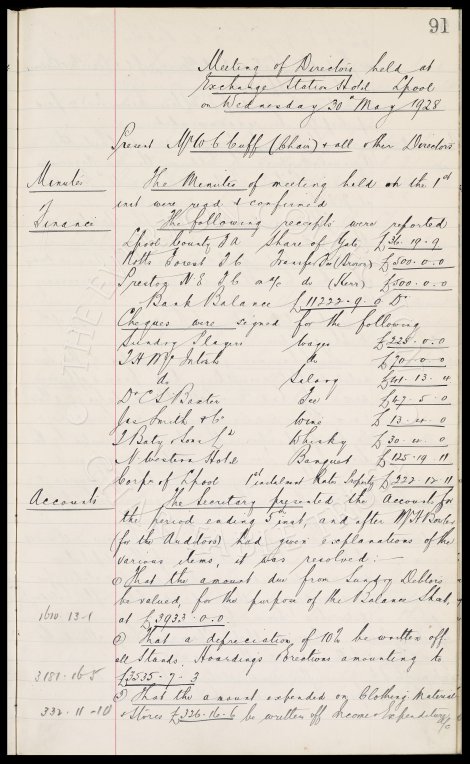 91
Meeting of Directors held at
Exchange Station Hotel Lpool
on Wednesday 30th May 1928
Present Mr W C Cuff (Chair) & all other Directors
Minutes The Minutes of meeting held on the 1st
inst were read & confirmed
Finance The following receipts were reported
Lpool County F A Share of Gate £36-19-9
Notts Forest F C Transfer Fee £500-0-0
Preston N. E. F C a/c do (Kerr) £500-0-0
Bank Balance £11222-9-0 Dr
Cheques were signed for the following
Sundry Players wages £228-0-0
T H McIntosh do £70-0-0
do Salary £41-13-4
Dr C S Baxter Fee £47-5-0
Jas Smith & Co wine £13-4-0
Whisky £30-4-0
N Western Hotel Banquet £125-19-11
Corpn of Lpool 1st instalment Rates £222-12-11
Accounts The Secretary presented the Accounts for
the period ending 5th inst, and after Mr H
(for the Auditors) had given explanations of the
various items, it was resolved.
1) That the amount due from Sundry Debtors
be valued, for the purpose of the Balance Sheet,
1610-13-1 at £3933-0-0
2) That a depreciation of 10% be written off
all Stands, Hoardings & Erections amounting to
3181-16-5 £3535-7-3
3) That the amount expended on Clothing, Material
332-11-10 & Stores £336-16-6 be written off Income & Expenditure a/c